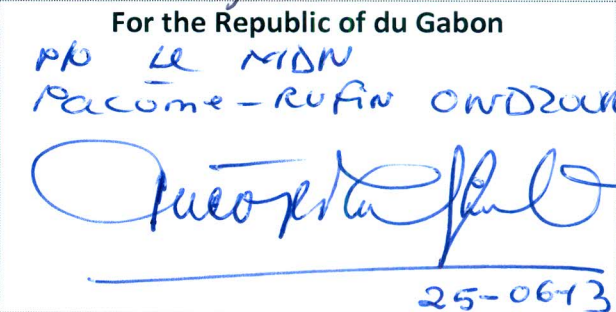 For the Republic of du Gabon
P/O LE MDN
Pacôme-RUFIN ONDZOUN
25-06-13